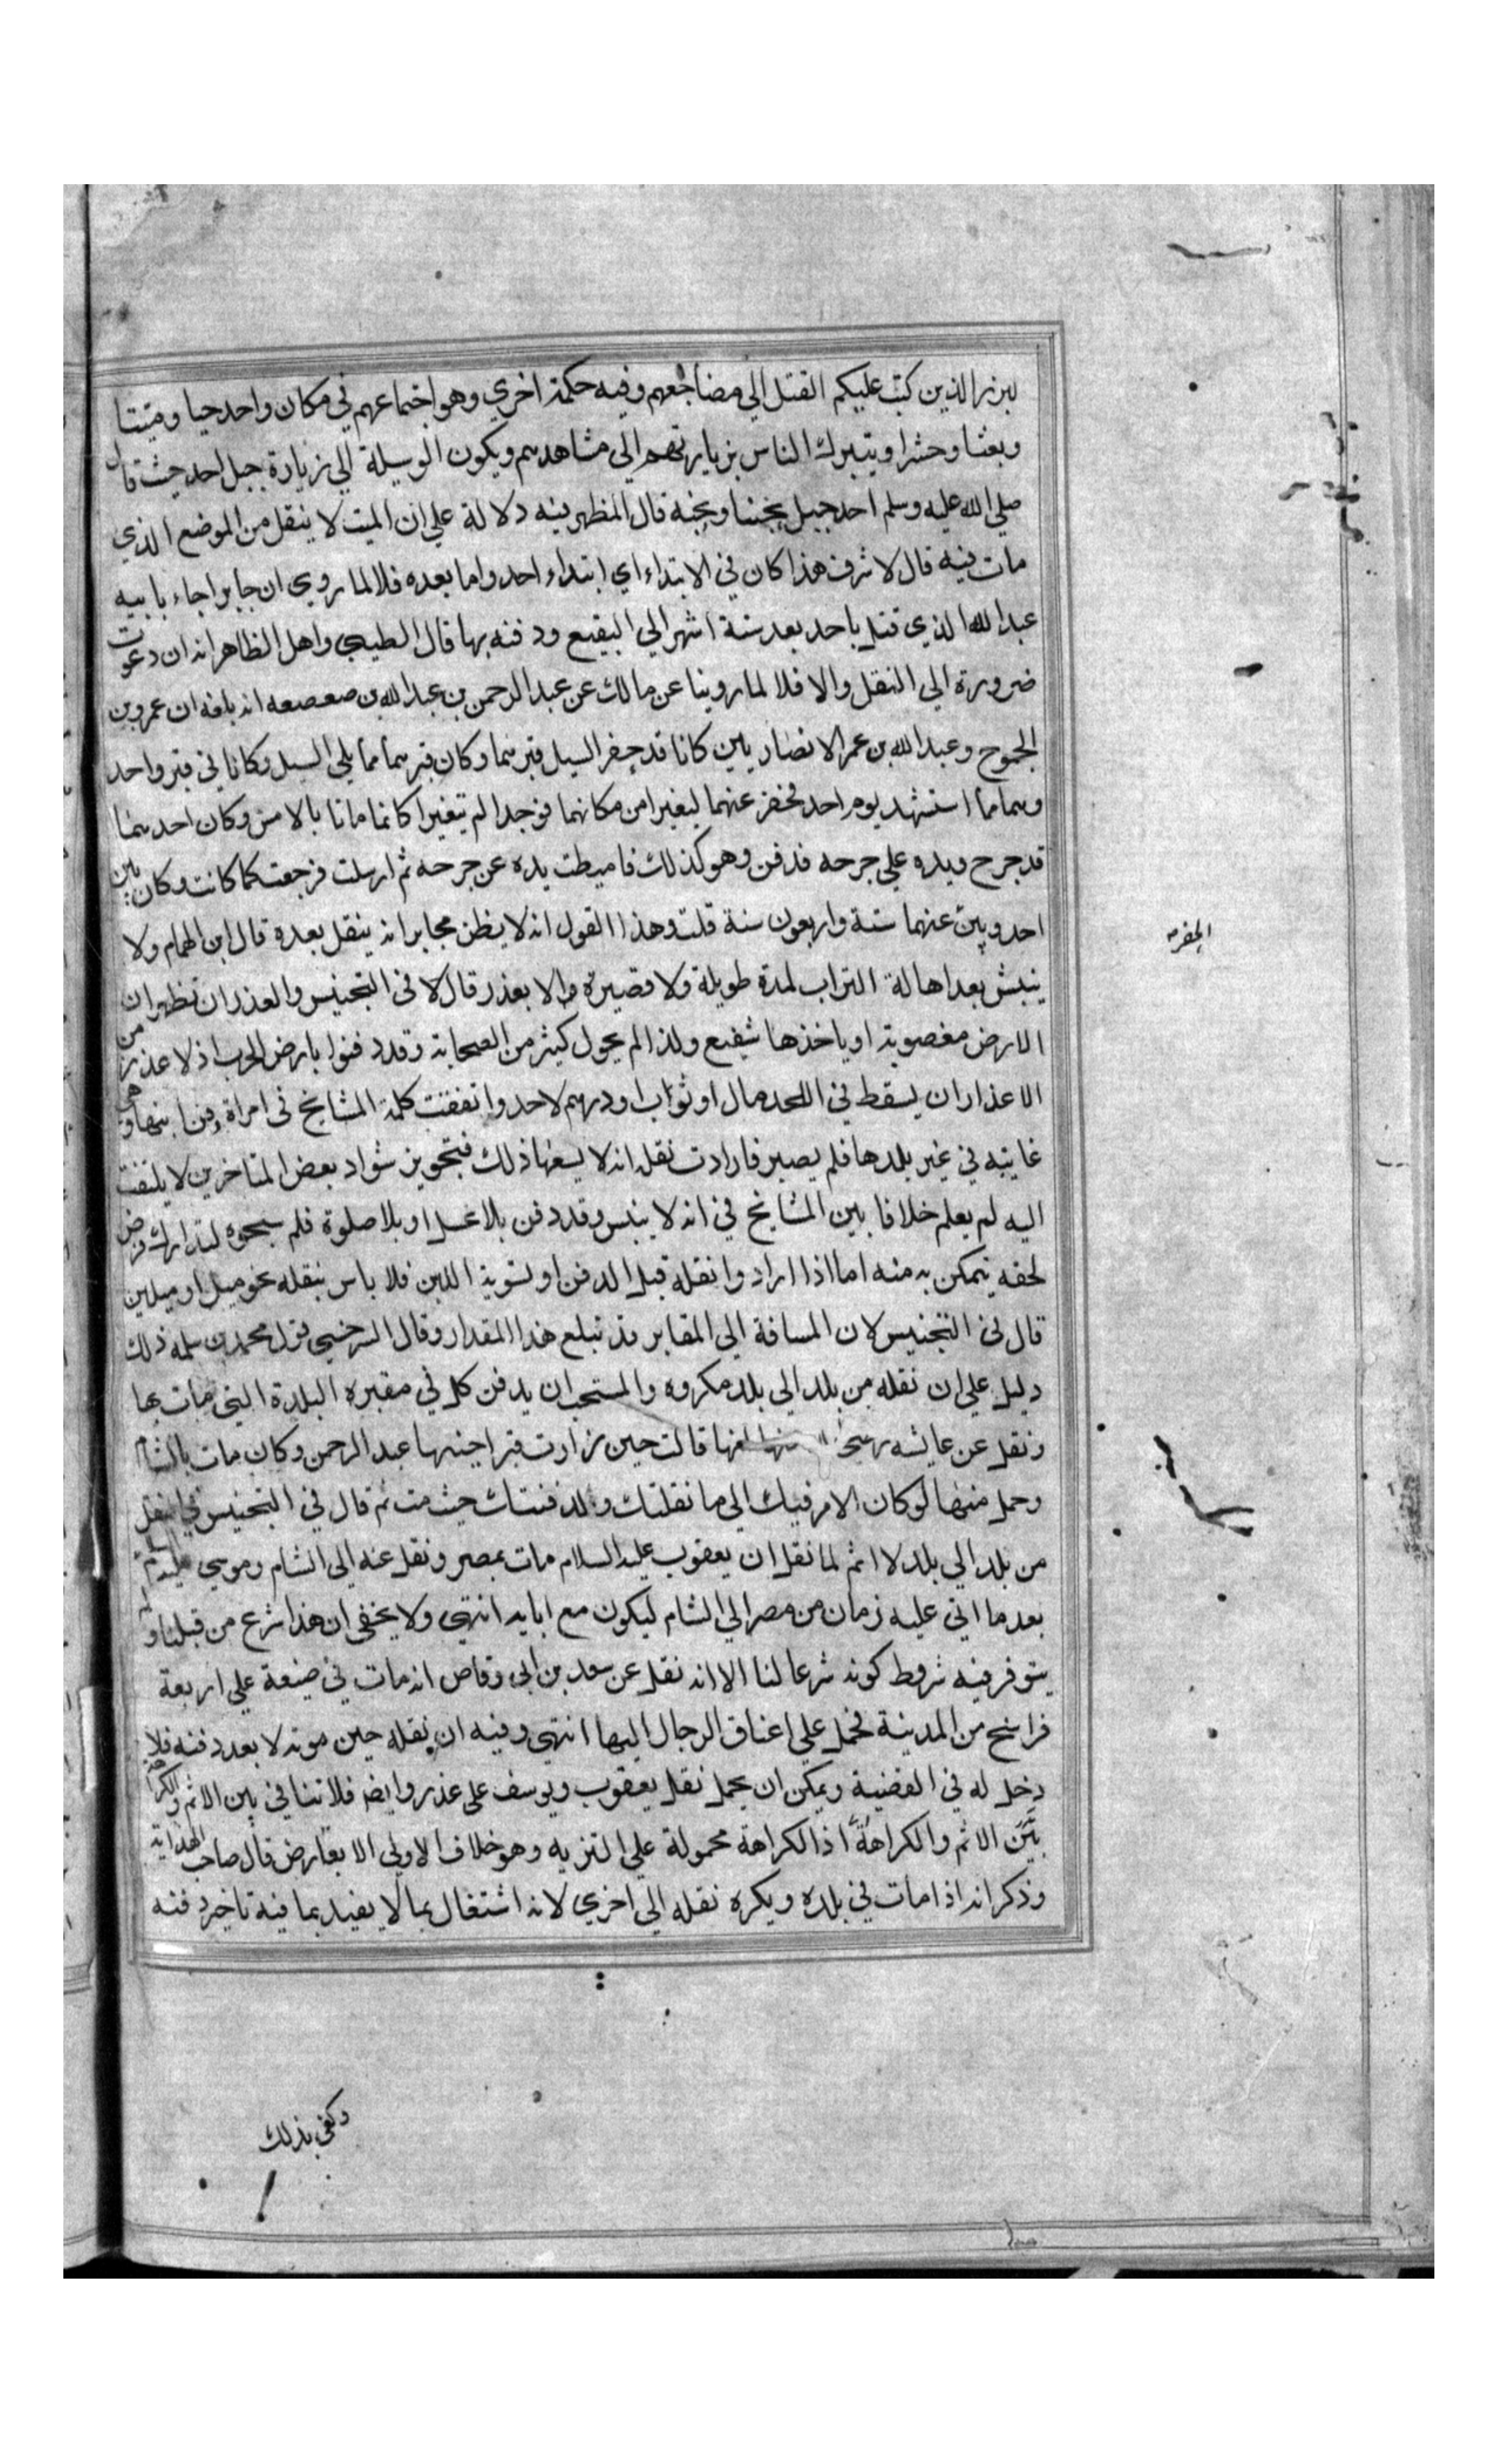 لبرز الذين كتب عليكم القتل الي مضاجعهم وفيه حكمة اخري وهو اجتماعهم في مكان واحد حيا وميتا
وبعثا وحشرا ويتبرك الناس بزيارتهم الي مشاهدهم ويكون الوسيلة الي زيارة جبل احد حيث قال
صلي الله عليه وسلم احد جبل يحبنا ونحبه قال المظهر فيه دلالة علي ان الميت لا ينقل من الموضع الذي
مات فيه قال لاشرف هذا كان في الابتداء اي ابتداء احد واما بعده فلا لما روي ان جابرا جاء بابيه
عبد الله الذي قتل باحد بعد ستة اشهر الي البقيع ودفنه بها قال الطيبي واهل الظاهر انه ان دعوت
ضرورة الي النقل والا فلا لما روينا عن مالك عن عبد الرحمن بن عبد الله بن صعصعه انه بلغه ان عمرو بن
الجموح وعبد الله بن عمر الانصاريين كانا قد حفر السيل قبرهما وكان قبرهما مما يلي السيل وكانا في قبر واحد
وهما مما استشهد يوم احد فحفر عنهما ليغيرا من مكانهما فوجدا لم يتغيرا كانما ماتا بالامس وكان احدهما
قد جرح ويده علي جرحه فدفن وهو كذلك فاميطت يده عن جرحه ثم ارسلت فرجعت كما كانت وكان بين
احد وبين عنهما ستة واربعون سنة قلت وهذا القول انه لا يظن بجابر انه ينقل بعده قال ابن الهمام ولا
الحفر
ينبش بعد اهالة التراب لمدة طويلة ولا قصيرة والا بعذر قال لا في التجنيس والعذر ان تظهر ان
الارض مغصوبة او ياخذها شفيع ولذا لم يحول كثير من الصحابة وقد دفنوا بارض الحرب اذ لا عذر من
الاعذار ان يسقط في اللحد مال او ثواب او درهم لاحد واتفقت كلمة المشايخ في امراة دفن ابنها وهي
غايبه في غير بلدها فلم يصبر فارادت نقله انه لا يسعها ذلك فتجويز شواد بعض المتاخرين لا يلتفت
اليه لم يعلم خلافا بين المشايخ في انه لا ينبس وقد دفن بلا غسل او بلا صلوة فلم لتدارك فرض
لحقه يتمكن به منه اما اذا ارادوا نقله قبل الدفن او لتسوية اللبن فلا باس بنقله نحو ميل او ميلين
قال في التجنيس لان المسافة الي المقابر قد تبلغ هذا المقدار وقال السرخسي قول محمد بن سلمه ذلك
دليل علي ان نقله من بلد الي بلد مكروه والمستحب ان يدفن كل في مقبره البلدة التي مات بها
ونقل عن عايشه انها قالت حين زارت قبر اخيها عبد الرحمن وكان مات بالشام
وحمل منها لو كان الامر فيك الي ما نقلتك ولدفنتك حيث مت ثم قال في التجنيس في النقل
من بلد الي بلد لا اثم لما نقل ان يعقوب عليه السلام مات بمصر ونقل عنه الي الشام وموسي
بعد ما اتي عليه زمان من مصر الي الشام ليكون مع ابايه انتهي ولا يخفي ان هذا شرع من قبلنا ولم
يتوفر فيه شروط كونه شرعا لنا الا انه نقل عن سعد بن ابي وقاص انه مات في ضيعة علي اربعة
فراسخ من المدينة فحمل علي اعناق الرجال اليها انتهي وفيه ان نقله حين موته لا بعد دفنه فلا
دخل له في القضية ويمكن ان يحمل نقل يعقوب ويوسف علي عذر وايضا فلا تنافي بين الاثم والكراهة
بين الاثم والكراهة اذ الكراهة محمولة علي التنزيه وهو خلاف الاولي الا بعارض قال صاحب الهداية
وذكر انه اذا مات في بلده ويكره نقله الي اخري لانه اشتغال بما لا يفيد بما فيه تاخير دفنه
وكفي بذلك